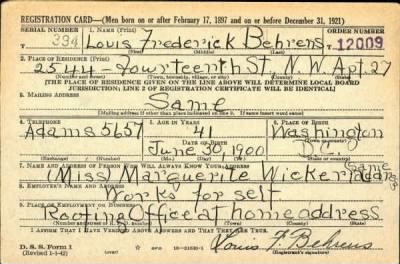 REGISTRATION CARD—(Men born on or after February 17, 1897 and on or before December 31, 1921)
SERIAL NUMBER 1. NAME (Print) ORDER NUMBER
394 Louis Frederick Behrens 12009
(First) (Middle) (Last)
2. PLACE OF RESIDENCE (Print)
2544 - Fourteenth St. N.W. Apt. 27
(Number and street) (Town, township, village, or city) (County) (State)
[THE PLACE OF RESIDENCE GIVEN ON THE LINE ABOVE WILL DETERMINE LOCAL BOARD
JURISDICTION; LINE 2 OF REGISTRATION CERTIFICATE WILL BE IDENTICAL]
3. MAILING ADDRESS
Same
[Mailing address if other than place indicated on line 2. If same insert word same]
4. TELEPHONE 5. AGE IN YEARS 6. PLACE OF BIRTH
Adams 5657 41 Washington
DATE OF BIRTH (Town or county)
June 30, 1900 D.C.
(Mo.) (Day) (Yr.) (State or country)
7. NAME AND ADDRESS OF PERSON WHO WILL ALWAYS KNOW YOUR ADDRESS
(Miss) Marguerite Wicker (Same
8. EMPLOYER'S NAME AND ADDRESS
Works for self
9. PLACE OF EMPLOYMENT OR BUSINESS
Office at home address
(Number and street or R. F. D. number) (Town) (County) (State)
I AFFIRM THAT I HAVE VERIFIED ABOVE ANSWERS AND THAT THEY ARE TRUE.
D. S. S. Form 1
(Revised 1-1-42) (over)
Louis F. Behrens
(Registrant's signature)